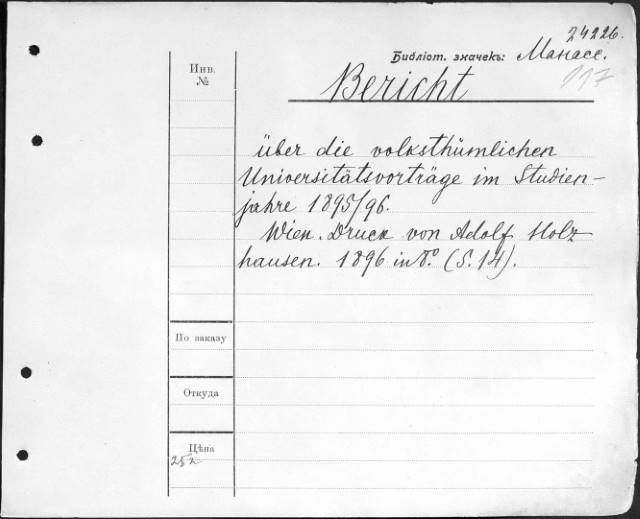 24226.
Библіот. значекъ: Манасе.
117
Инв.
№
Bericht
über die volksthümlichen
Universitätsvorträge im Studien-
jahre 1895/96.
Wien. Druck von Adolf Holz
hausen. 1896 in 8.° (S. 14).
По заказу
Откуда
Цѣна